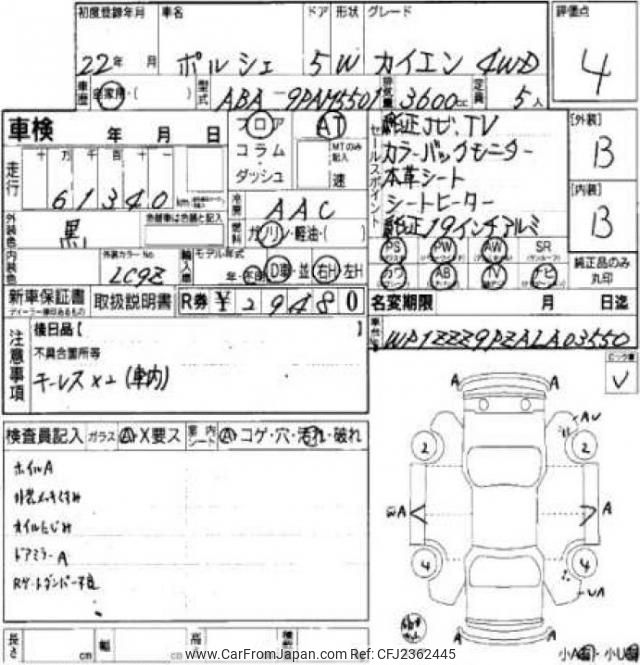 初度登録年月 車名 ドア 形状 グレード 評価点
22年 月 ポルシェ 5 W カイエン 4WD 4
車歴 自家用・( ) 型式 ABA-9PAM5501 排気量 3600cc 定員 5人
車検 年 月 日 フロア AT
コラム MTのみ記入
ダッシュ 速
セールスポイント
純正ナビ、TV
カラーバックモニター
本革シート
シートヒーター
純正19インチアルミ
[外装] B
[内装] B
走行 十 万 千 百 十 一
61340 km
冷房 AAC
外装色 黒 色替車は色替と記入
燃料 ガソリン・軽油・( )
PS PW AW SR
カワ AB TV ナビ
純正品のみ丸印
内装色 外装カラーNo. LC9Z 輸入車 モデル年式
年・不明 D車・並 右H・左H
新車保証書 取扱説明書 R券 ¥ 29480
ディーラー捺印あるもの
名変期限 月 日迄
後日品【 】
車台No. WP1ZZZ9PZALA03550
注意事項
不具合箇所等
キーレス×2 (車内)
検査員記入 ガラス A・X要ス 室内シート A・コゲ・穴・汚れ・破れ
ホイルA
外装メッキくすみ
オイルにじみ
ドアミラーA
Rゲートダンパー不良
A A
AU
2 2
A A
4 4
UA
A A
長さ cm 幅 cm 高さ
小A 小U
www.CarFromJapan.com Ref: CFJ2362445